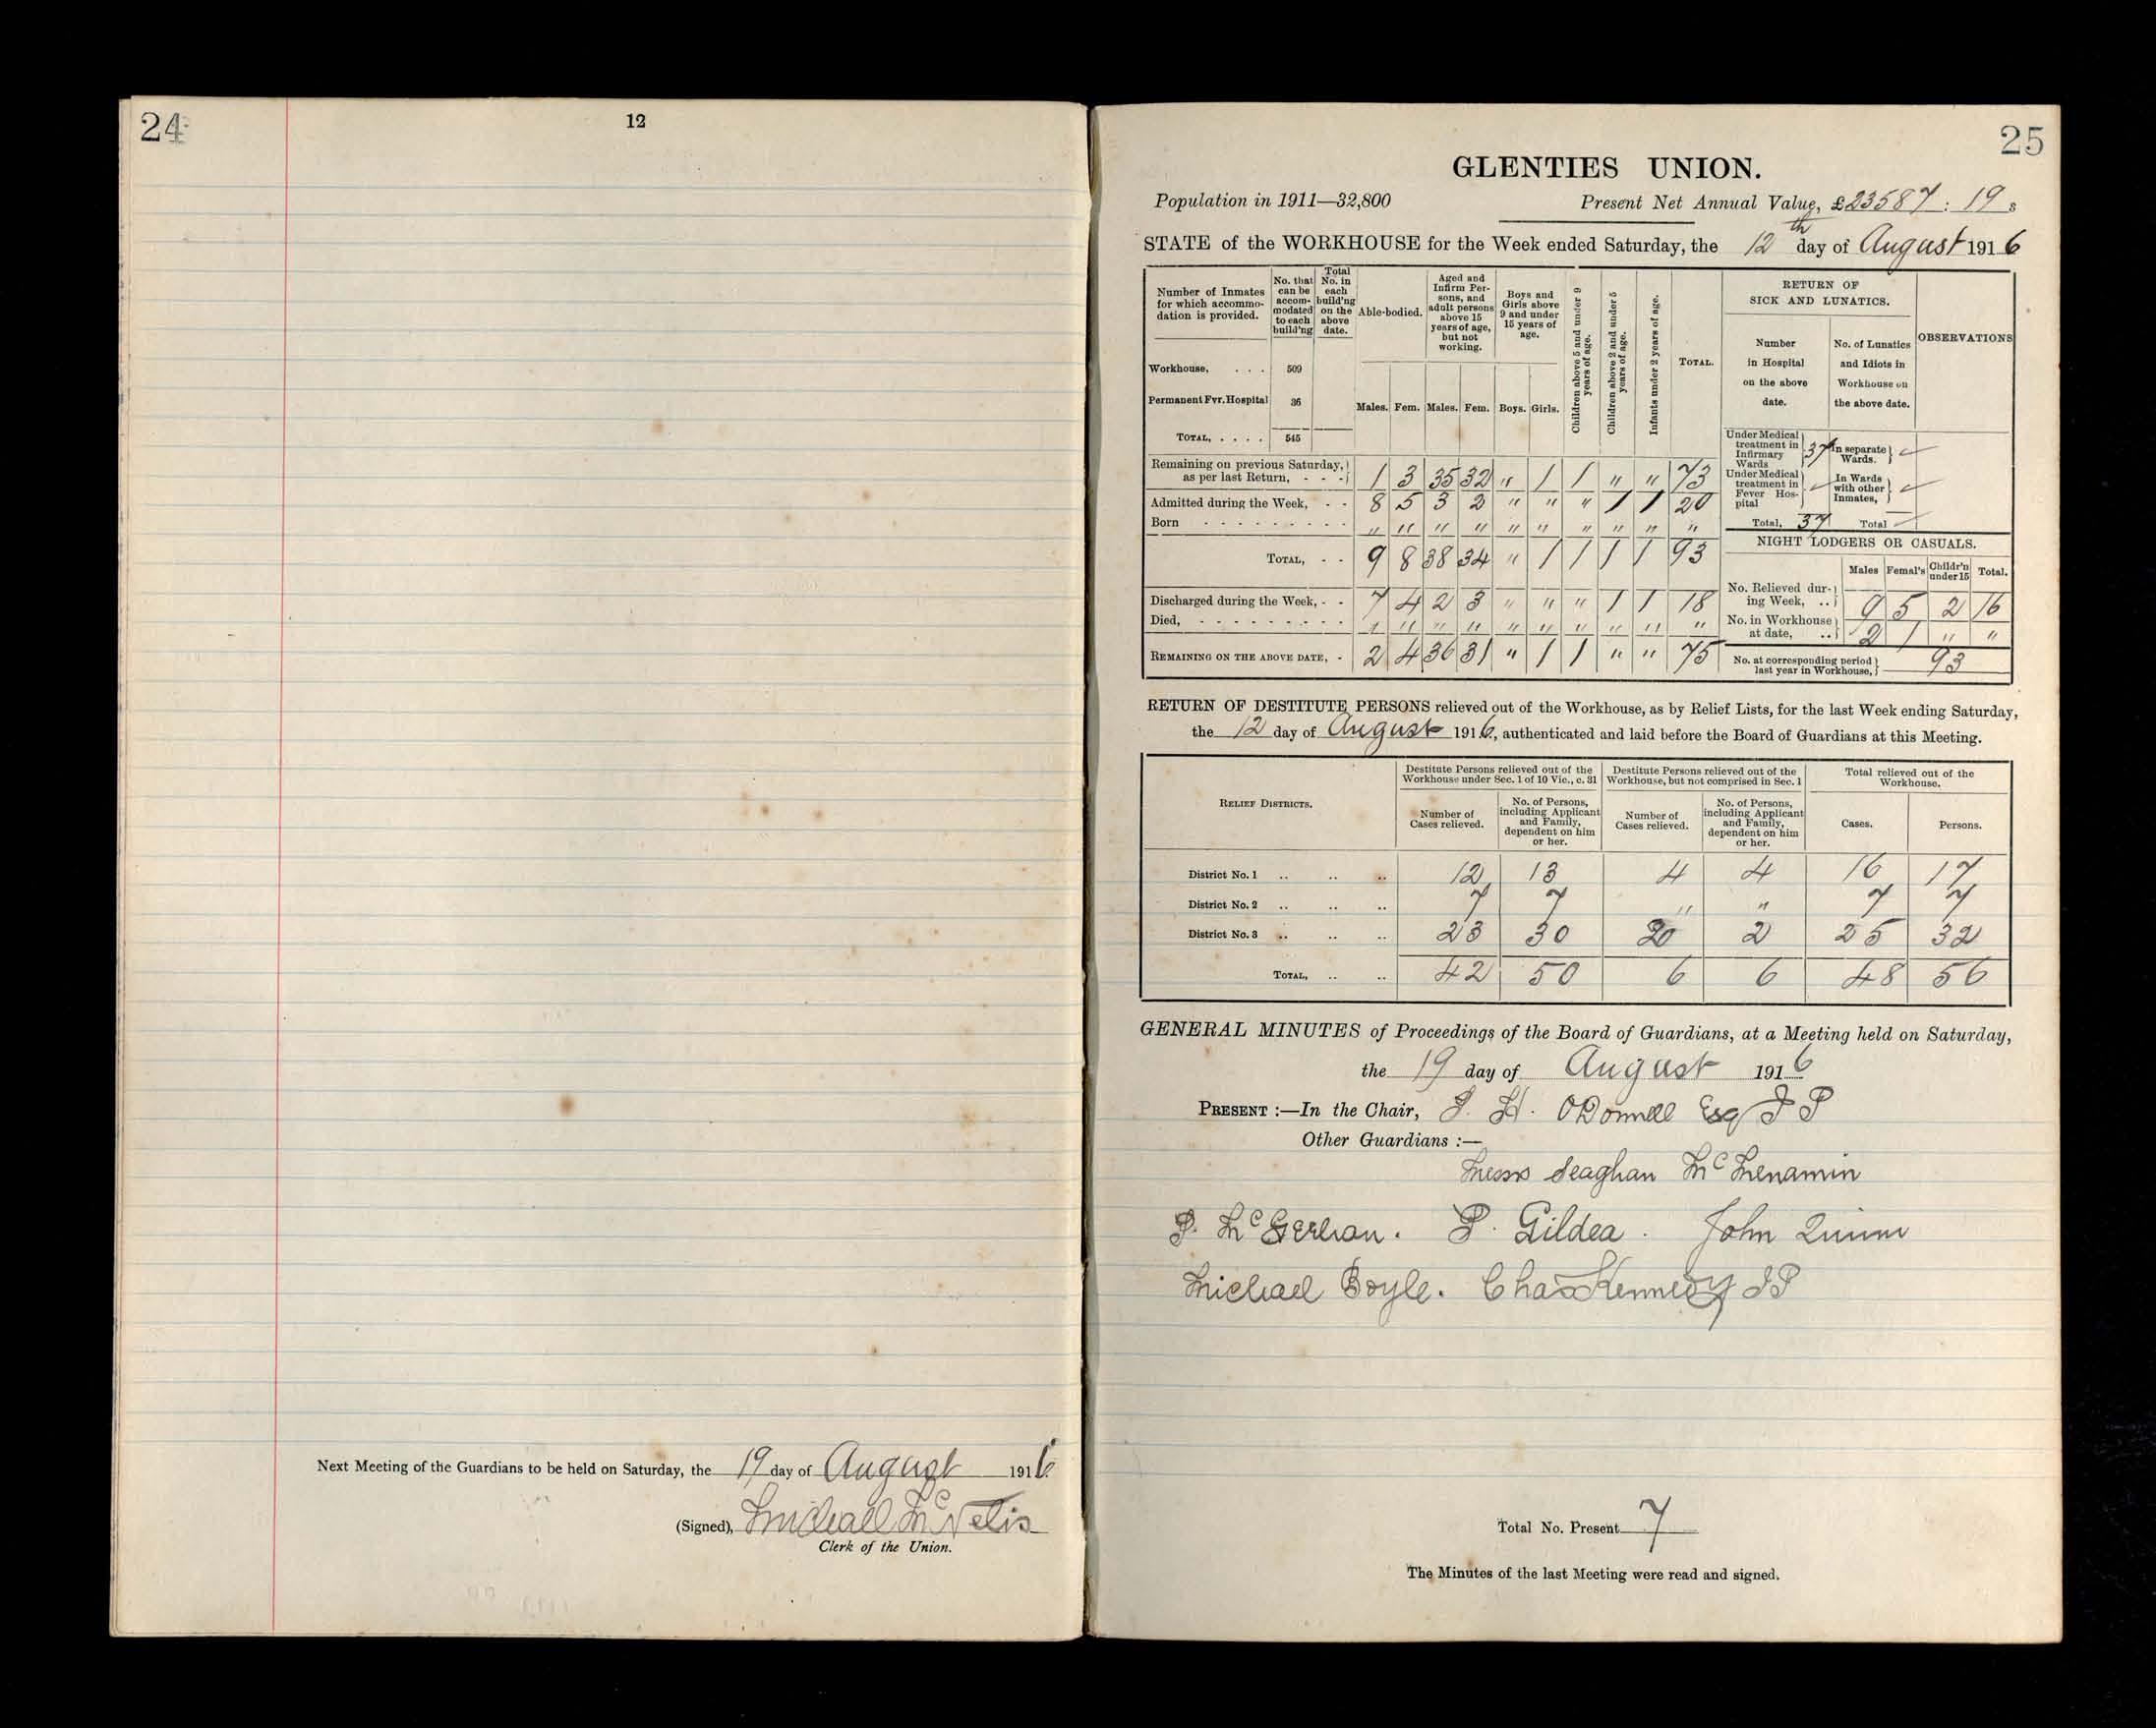 24
12
Next Meeting of the Guardians to be held on Saturday, the 19 day of August 1916.
(Signed), Michael McNelis
Clerk of the Union.
25
GLENTIES UNION.
Population in 1911—32,800 Present Net Annual Value, £23587 : 19 s
STATE of the WORKHOUSE for the Week ended Saturday, the 12th day of August 1916
Number of Inmates for which accommodation is provided.
No. that can be accommodated to each build'ng
Total No. in each build'ng on the above date.
Able-bodied.
Aged and Infirm Persons, and adult persons above 15 years of age, but not working.
Boys and Girls above 9 and under 15 years of age.
Children above 5 and under 9 years of age.
Children above 2 and under 5 years of age.
Infants under 2 years of age.
TOTAL.
RETURN OF SICK AND LUNATICS.
Number in Hospital on the above date.
No. of Lunatics and Idiots in Workhouse on the above date.
OBSERVATIONS
Workhouse, . . . 509
Permanent Fvr. Hospital 36
TOTAL, . . . . 545
Males. Fem. Males. Fem. Boys. Girls.
Remaining on previous Saturday, as per last Return, - - - 1 3 35 32 " 1 1 " " 73
Admitted during the Week, - - 8 5 3 2 " " " 1 1 20
Born - - - - - - - - - " " " " " " " " " "
TOTAL, - - 9 8 38 34 " 1 1 1 1 93
Discharged during the Week, - - 7 4 2 3 " " " 1 1 18
Died, - - - - - - - - - " " " " " " " " " "
REMAINING ON THE ABOVE DATE, - 2 4 36 31 " 1 1 " " 75
Under Medical treatment in Infirmary Wards 37
In separate Wards. ✓
Under Medical treatment in Fever Hospital ✓
In Wards with other Inmates, ✓
Total, 37 Total ✓
NIGHT LODGERS OR CASUALS.
Males Femal's Childr'n under 15 Total.
No. Relieved during Week, .. 9 5 2 16
No. in Workhouse at date, .. 2 1 " "
No. at corresponding period last year in Workhouse, 93
RETURN OF DESTITUTE PERSONS relieved out of the Workhouse, as by Relief Lists, for the last Week ending Saturday,
the 12 day of August 1916, authenticated and laid before the Board of Guardians at this Meeting.
RELIEF DISTRICTS.
Destitute Persons relieved out of the Workhouse under Sec. 1 of 10 Vic., c. 31
Destitute Persons relieved out of the Workhouse, but not comprised in Sec. 1
Total relieved out of the Workhouse.
Number of Cases relieved.
No. of Persons, including Applicant and Family, dependent on him or her.
Number of Cases relieved.
No. of Persons, including Applicant and Family, dependent on him or her.
Cases.
Persons.
District No. 1 .. .. .. 12 13 4 4 16 17
District No. 2 .. .. .. 7 7 " " 7 7
District No. 3 .. .. .. 23 30 20 2 25 32
TOTAL, .. .. 42 50 6 6 48 56
GENERAL MINUTES of Proceedings of the Board of Guardians, at a Meeting held on Saturday,
the 19 day of August 1916
PRESENT :—In the Chair, J. H. O'Donnell Esq JP
Other Guardians :—
Messrs Seaghan McMenamin
P. McGeehan. P. Gildea. John Quinn
Michael Boyle. Chas Kennedy JP
Total No. Present 7
The Minutes of the last Meeting were read and signed.